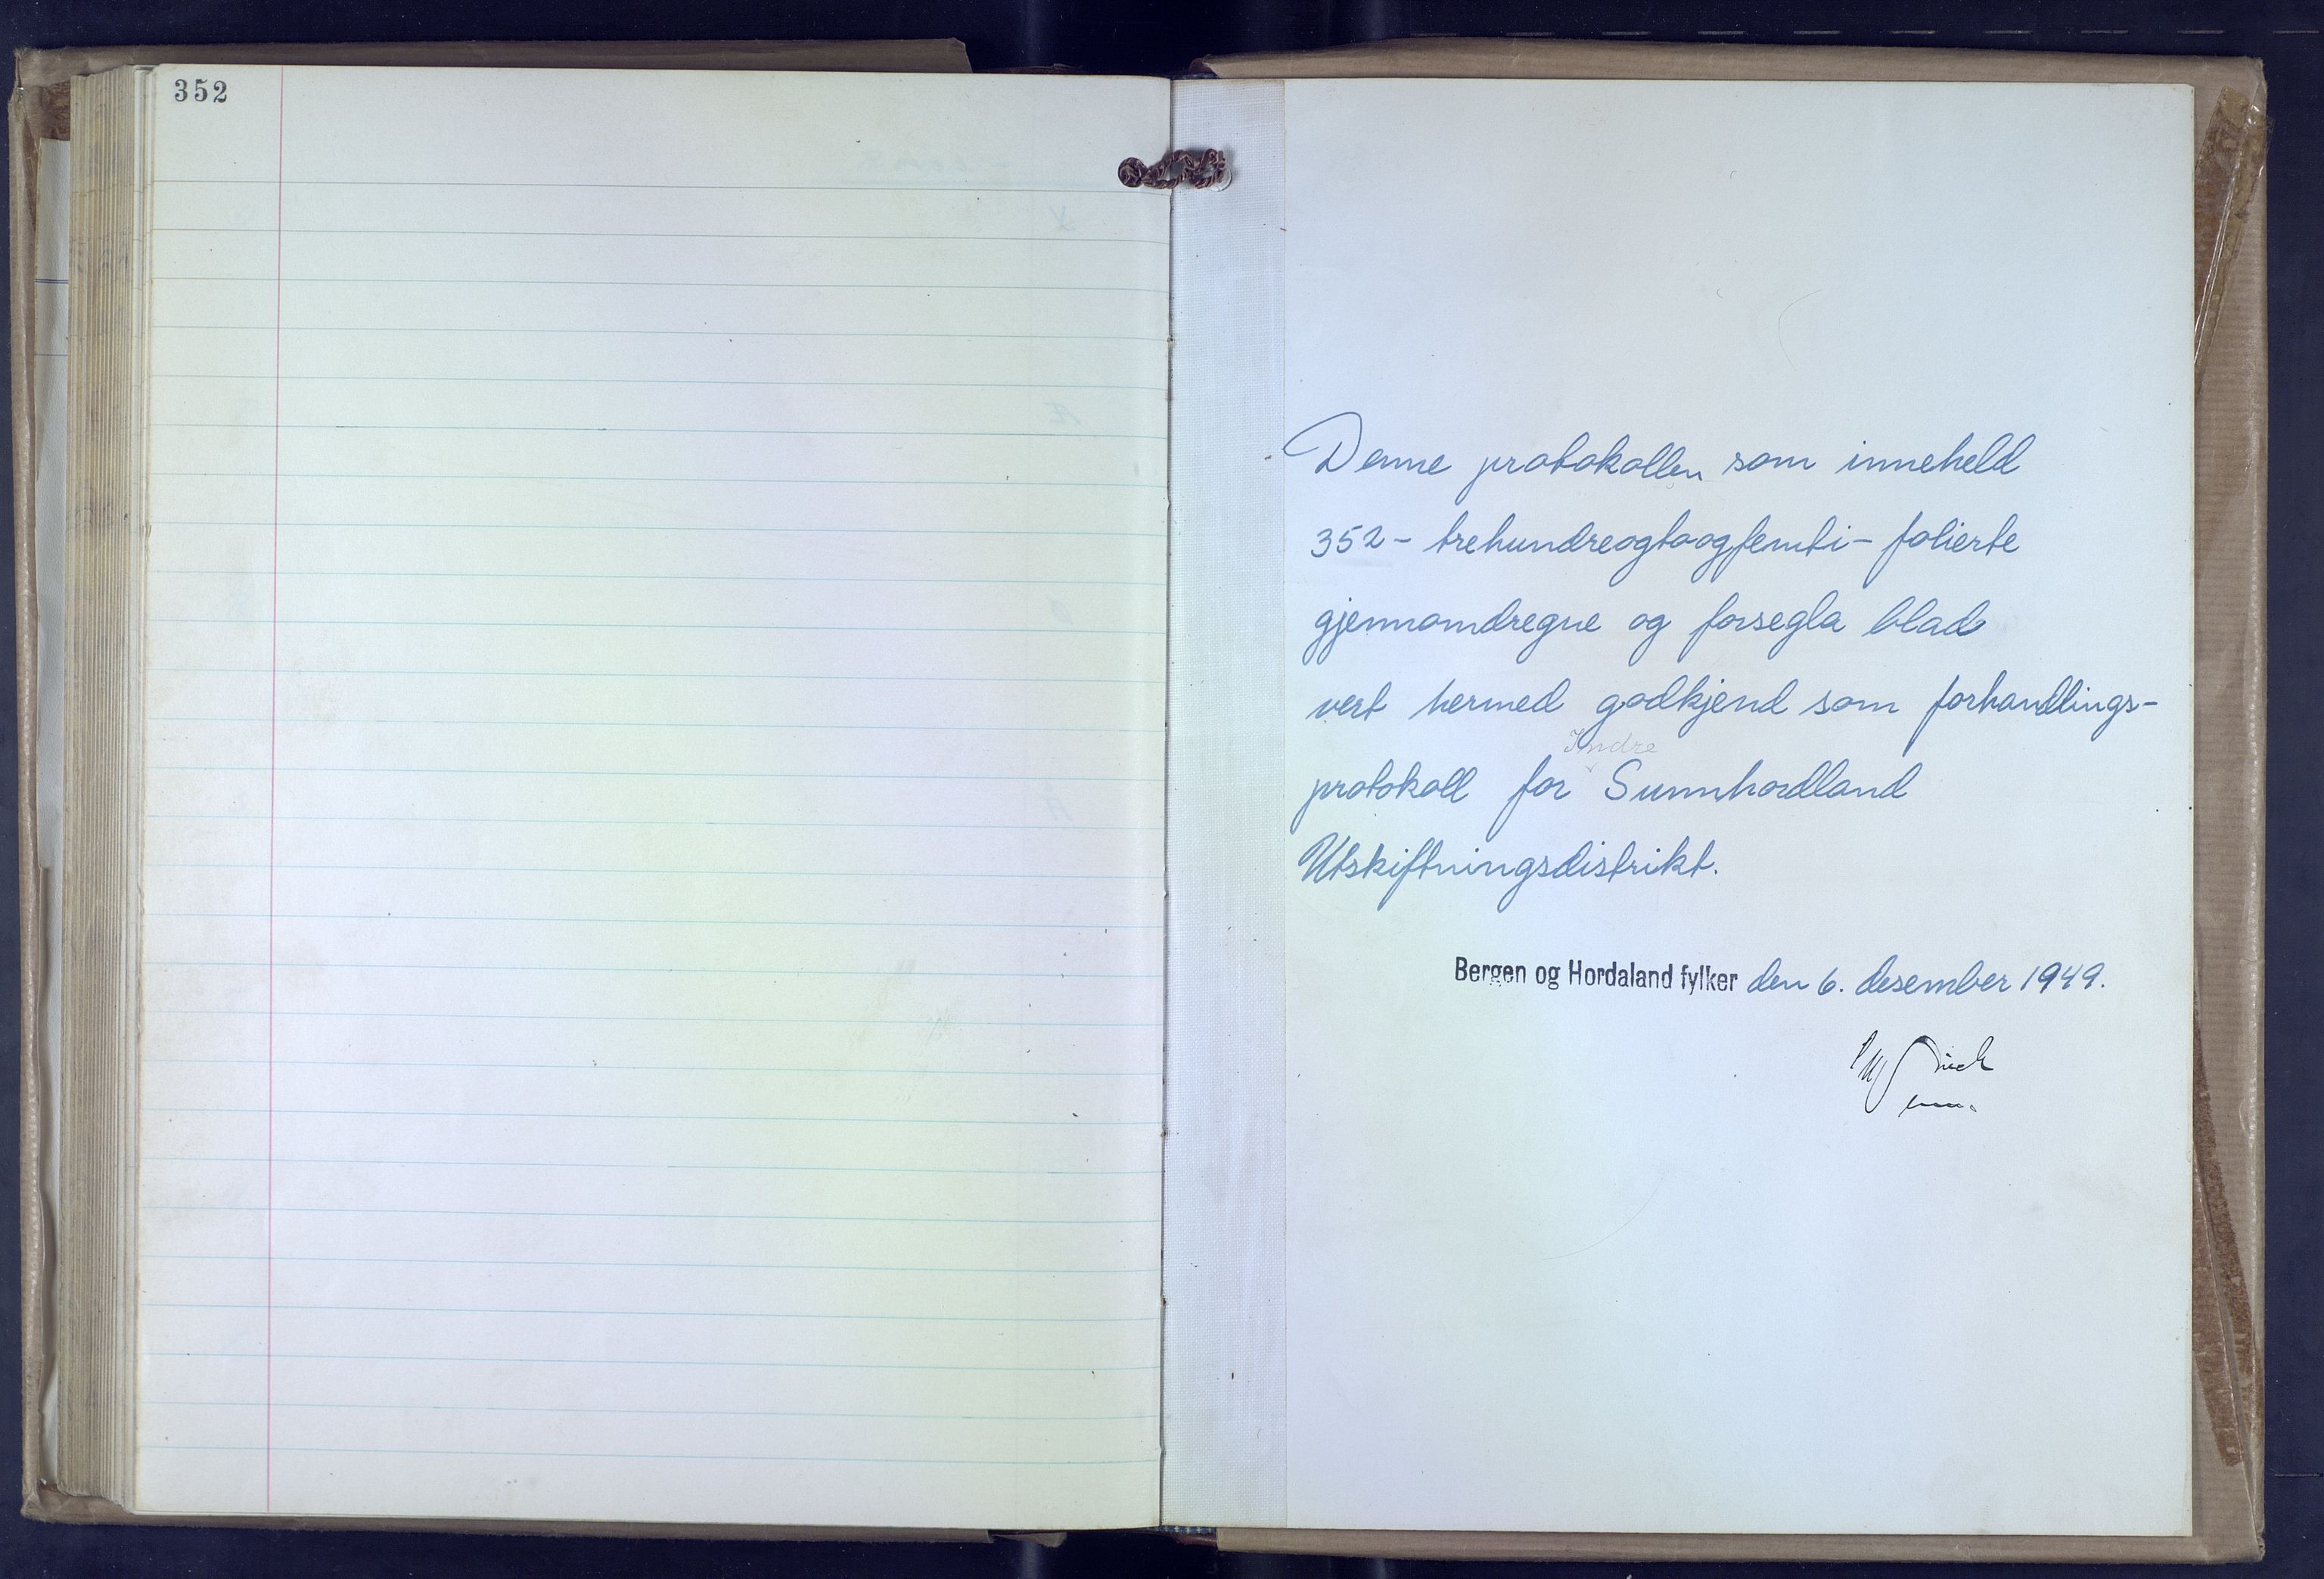 352
Denne protokollen som inneheld
352 - trehundreogtoogfemti - folierte
gjennomdregne og forsegla blad
vert hermed godkjend som forhandlings-
Indre
protokoll for Sunnhordland
Utskiftningsdistrikt.
Bergen og Hordaland fylker den 6. desember 1949.